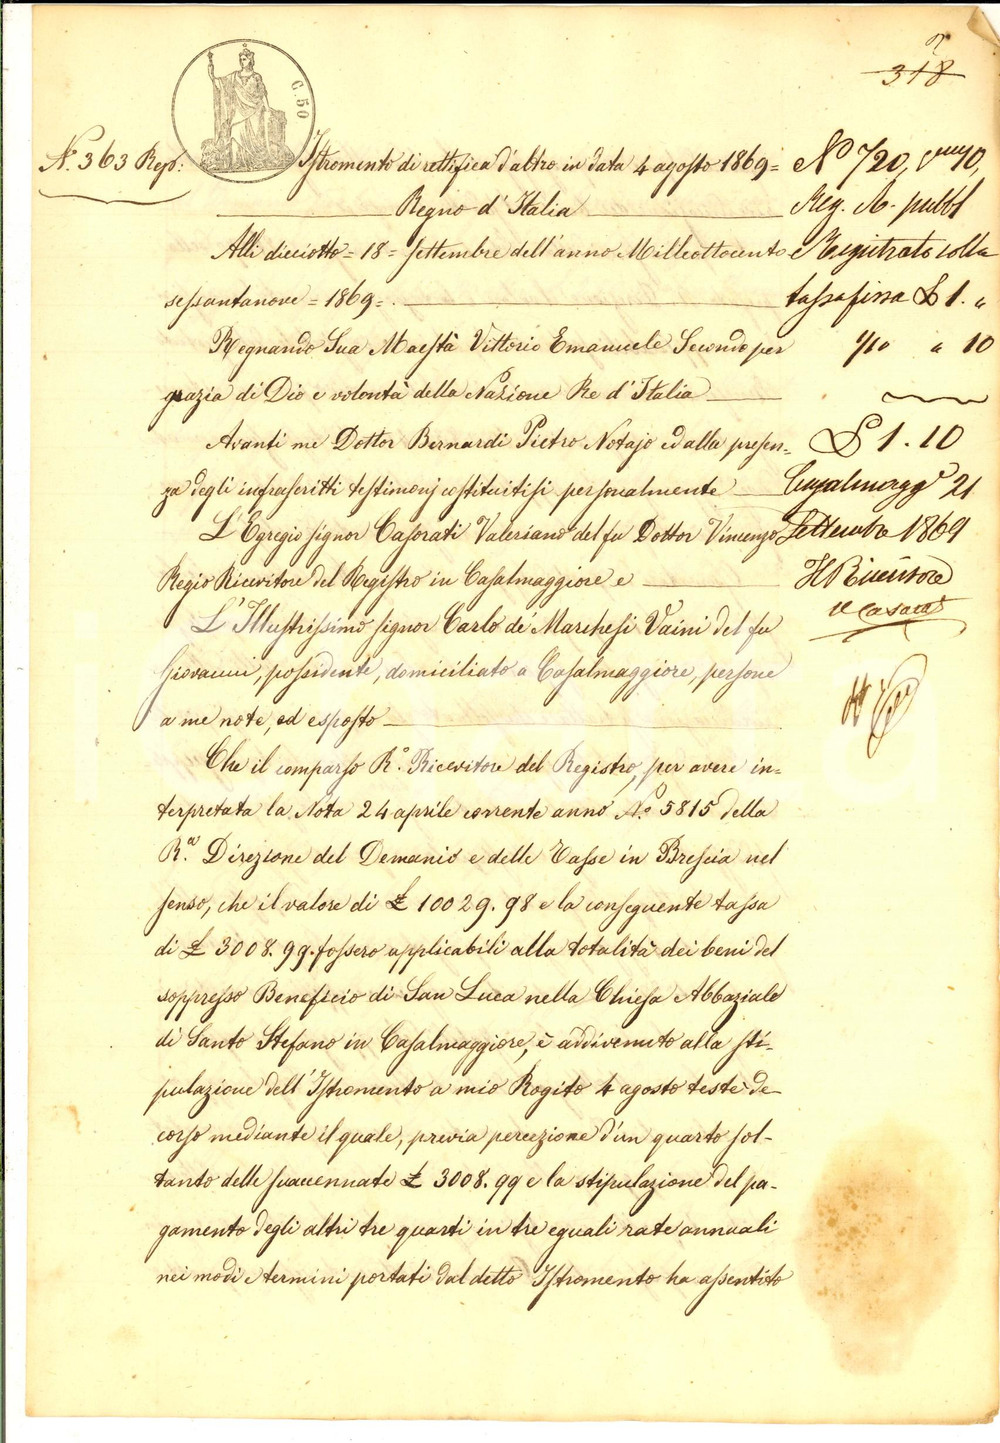 318
C. 50
N.° 363 Rep.°
Istromento di rettifica d'altro in data 4 agosto 1869=
Regno d'Italia
Alli dieciotto = 18 = settembre dell'anno Milleottocento e
sessantanove = 1869 = .
Regnando Sua Maestà Vittorio Emanuele Secondo per
grazia di Dio e volontà della Nazione Re d'Italia
Avanti me Dottor Bernardi Pietro Notajo ed alla presen=
za degli infrascritti testimonj costituitisi personalmente
L'Egregio signor Casorati Valeriano del fu Dottor Vincenzo
Regio Ricevitore del Registro in Casalmaggiore e
L'Illustrissimo signor Carlo de' Marchesi Vaini del fu
Giovanni, possidente, domiciliato a Casalmaggiore, persone
a me note, ed esposto
Che il comparso R.° Ricevitore del Registro, per avere in=
terpretata la Nota 24 aprile corrente anno N.° 5815 della
R.a Direzione del Demanio e delle Tasse in Brescia nel
senso, che il valore di £ 10029.98 e la conseguente tassa
di £ 3008.99. fossero applicabili alla totalità dei beni del
soppresso Beneficio di San Luca nella Chiesa Abbaziale
di Santo Stefano in Casalmaggiore, è addivenuto alla sti=
pulazione dell'Istromento a mio Rogito 4 agosto testè de=
corso mediante il quale, previa percezione d'un quarto sol=
tanto delle suaccennate £ 3008.99 e la stipulazione del pa=
gamento degli altri tre quarti in tre eguali rate annuali
nei modi e termini portati dal detto Istromento ha assentito
N° 720,
Reg. A. pubbl
Registrato colla
tassa fissa £ 1. "
1/10 " 10
£ 1. 10
Casalmagg.e 21
Settembre 1869
Il Ricevitore
V Casorati